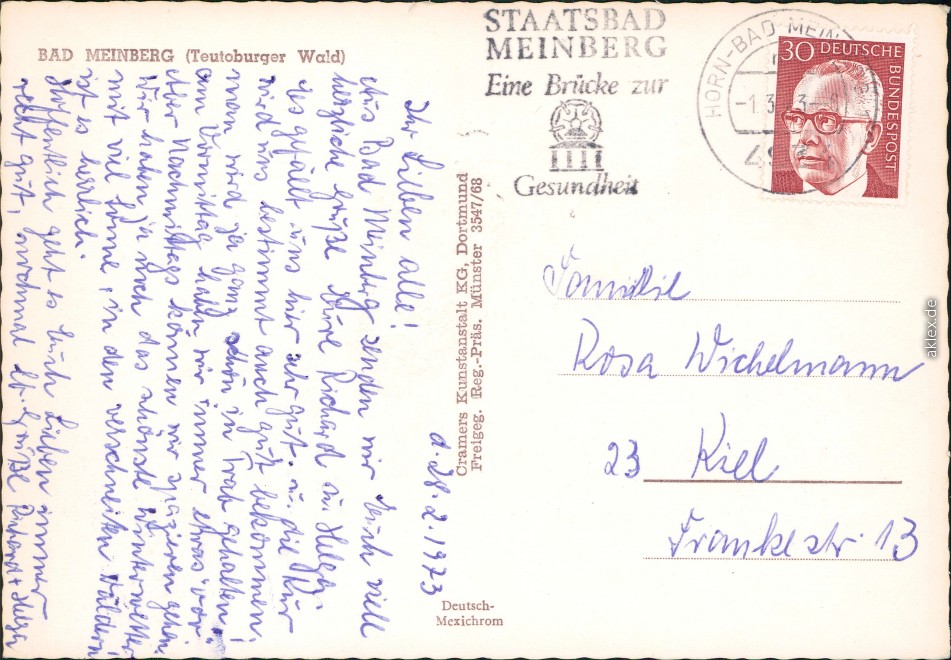 BAD MEINBERG (Teutoburger Wald)
STAATSBAD
MEINBERG
Eine Brücke zur
Gesundheit
HORN-BAD MEIN
30 DEUTSCHE BUNDESPOST
d. 28.2.1973
Ihr Lieben alle!
Aus Bad Meinberg senden wir Euch viele
herzliche Grüße Eure Richard u. Helga.
Es gefällt uns hier sehr gut. u. die Kur
wird uns bestimmt auch gut bekommen,
man wird ja ganz schön in Trab gehalten!
am Vormittag haben wir immer etwas vor.
aber Nachmittags können wir spazieren gehen.
Wir haben ja noch das schönste Winterwetter
mit viel Sonne, in den verschneiten Wäldern
ist es herrlich.
Hoffentlich geht es Euch Lieben immer
recht gut, nochmal lb. Grüße Richard + Helga
Cramers Kunstanstalt KG, Dortmund
Freigeg. Reg.-Präs. Münster 3547/68
Deutsch-
Mexichrom
Familie
Rosa Wichelmann
23 Kiel
Frankestr. 13
aklex.de